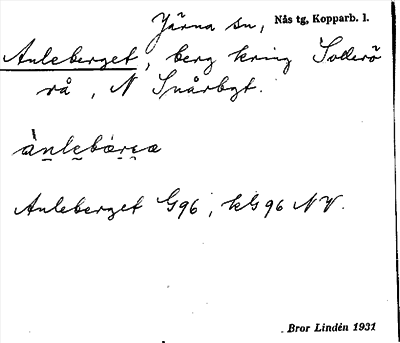 Järna sn, Nås tg, Kopparb. l.
Anleberget, berg kring Solberö
rå, N Snårbgt.
Anleberget G96, kG96 NV.
Bror Lindén 1931